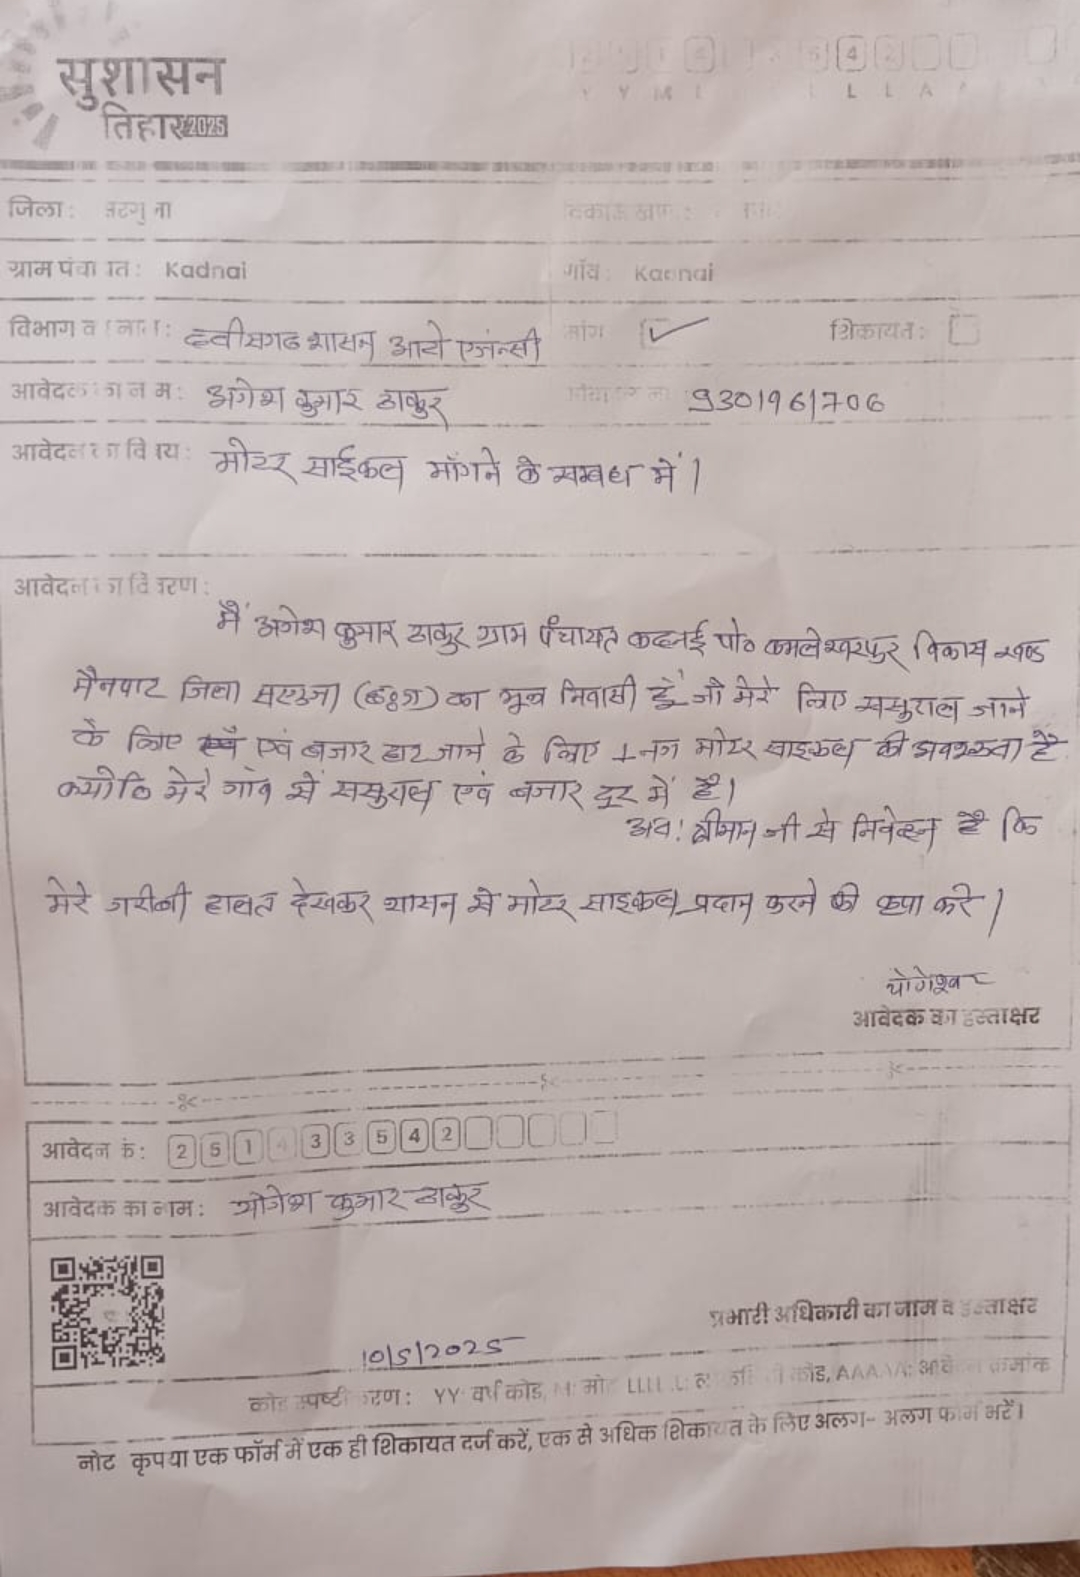 सुशासन
तिहार 2025
4
L L A
जिला:
ग्राम पंचायत: Kadnai
गाँव: Kadnai
विभाग का नाम: छत्तीसगढ शासन
मांग ✓ शिकायत:
आवेदक का नाम: अगेश कुमार ठाकुर
9301961706
आवेदन का विषय: मोटर साईकल माँगने के सम्बध में।
आवेदन का विवरण:
मैं अगेश कुमार ठाकुर ग्राम पंचायत कदनई पो० कमलेश्वरपुर विकास खण्ड
मैनपाट जिला (छ०ग) का मूल निवासी हूँ जो मेरे लिए ससुराल जाने
के लिए एवं बजार हाट जाने के लिए 1 नग मोटर साइकल की है
क्योकि मेरे गाँव से ससुराल एवं बजार दूर में है।
अत: श्रीमान जी से निवेदन है कि
मेरे गरीबी हालत देखकर शासन से मोटर साइकल प्रदान करने की कृपा करे।
योगेश्वर
आवेदक का हस्ताक्षर
आवेदन क्रं: 2 5 1 4 3 3 5 4 2
आवेदक का नाम: योगेश कुमार ठाकुर
प्रभारी अधिकारी का नाम व हस्ताक्षर
10/5/2025
कोड स्पष्टीकरण: YY वर्ष कोड, कोड, आवेदन क्रमांक
नोट कृपया एक फॉर्म में एक ही शिकायत दर्ज करें, एक से अधिक शिकायत के लिए अलग- अलग फार्म भरें।